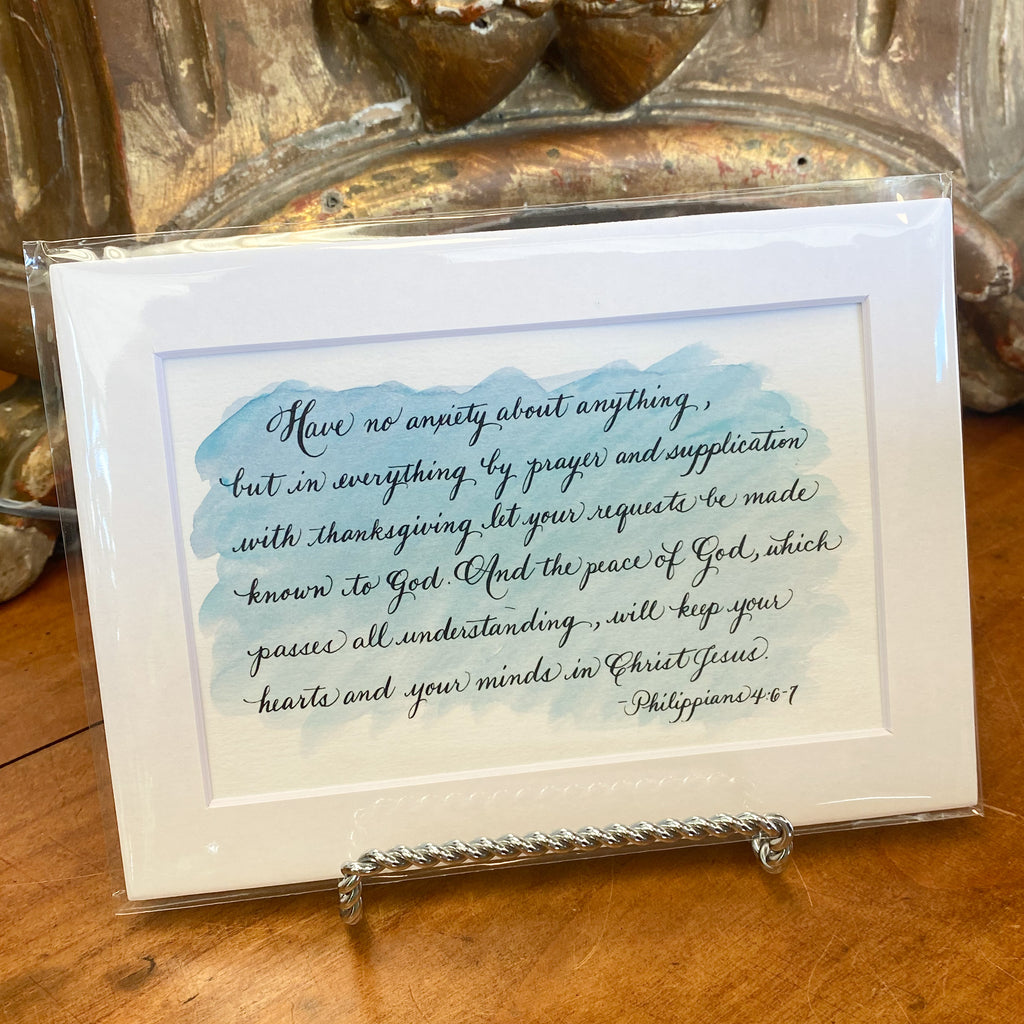 Have no anxiety about anything,
but in everything by prayer and supplication
with thanksgiving let your requests be made
known to God. And the peace of God, which
passes all understanding, will keep your
hearts and your minds in Christ Jesus.
-Philippians 4:6-7